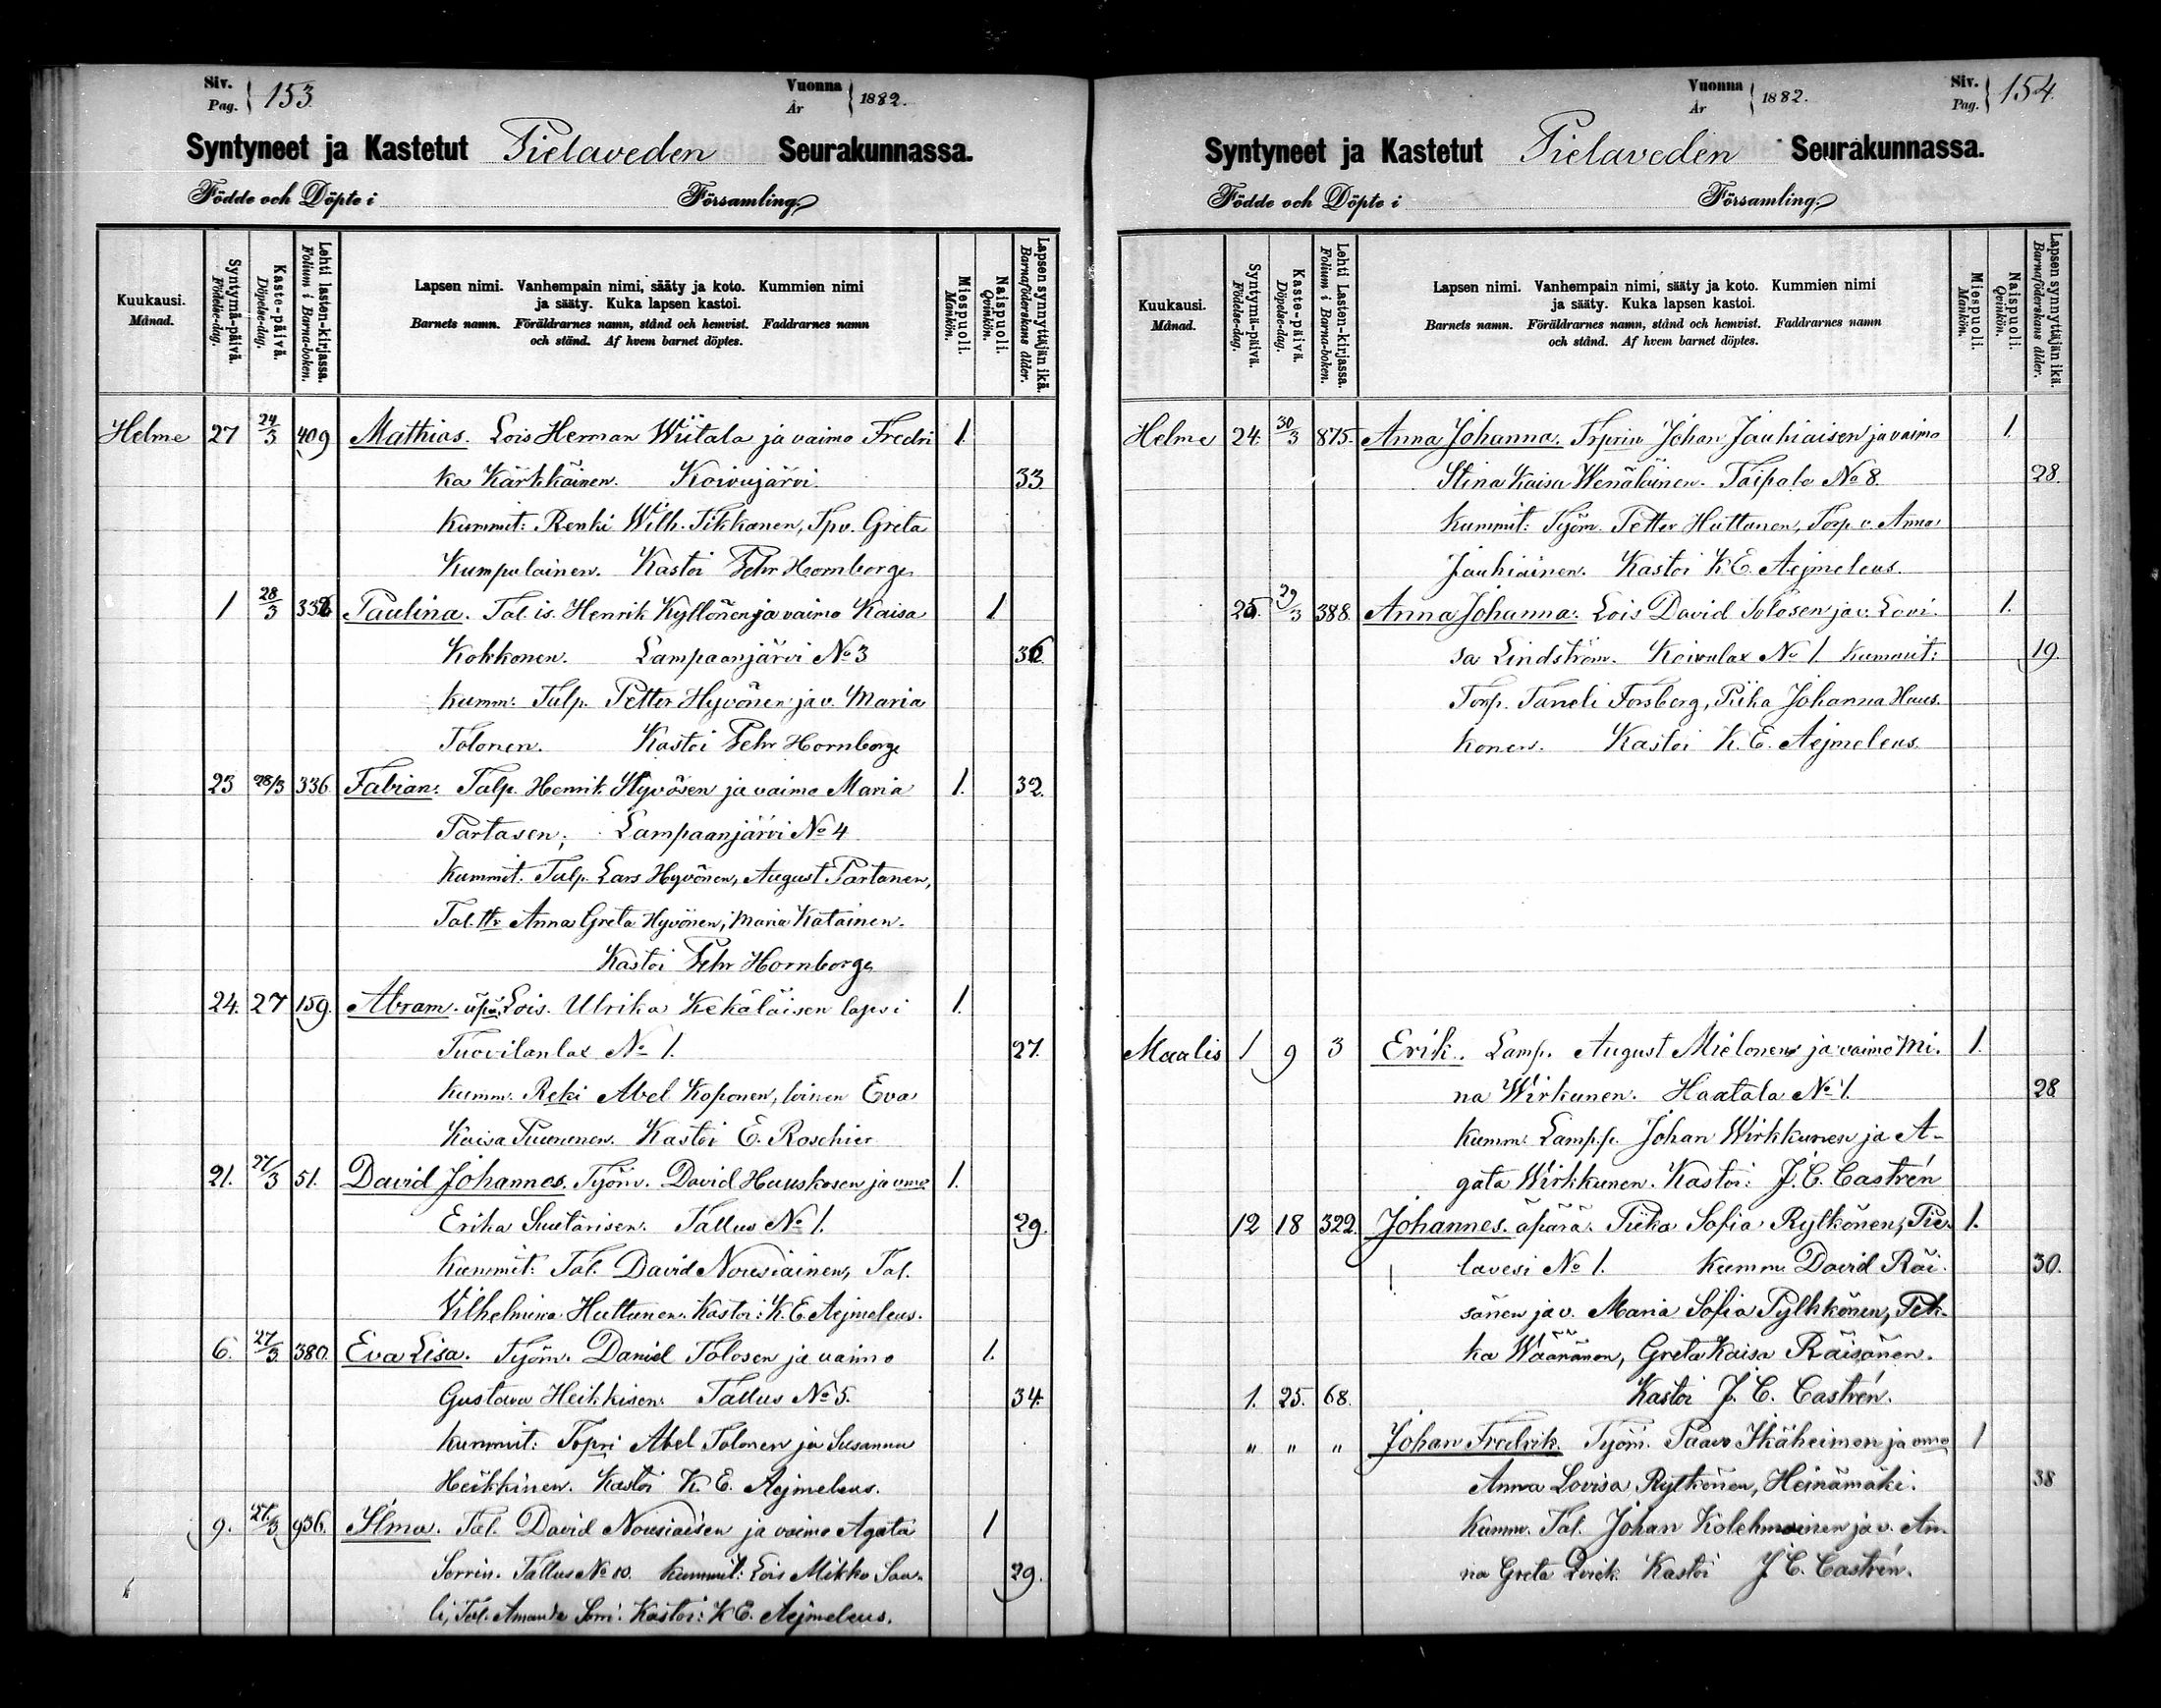 Siv. Pag. 153. Vuonna År 1882.
Syntyneet ja Kastetut Pielaveden Seurakunnassa.
Födde och Döpte i Församling.
Kuukausi. Månad.
Syntymä-päivä. Födelse-dag.
Kaste-päivä. Döpelse-dag.
Lehti lasten-kirjassa. Folium i Barna-boken.
Lapsen nimi. Vanhempain nimi, sääty ja koto. Kummien nimi
ja sääty. Kuka lapsen kastoi.
Barnets namn. Föräldrarnes namn, stånd och hemvist. Faddrarnes namn
och stånd. Af hvem barnet döptes.
Miespuoli. Mankön.
Naispuoli. Qvinkön.
Lapsen synnyttäjän ikä. Barnaföderskans ålder.
Helme 27 24/3 409 Mathias. Lois Herman Wiitala ja vaimo Fredri 1.
ka Kärkkäinen. Koivujärvi. 33
Kummit: Renki Wilh. Tikkanen, Tpv. Greta
Kumpulainen. Kastoi Pehr Hornborg
1 28/3 Paulina. Tal. is. Henrik Kyllönen ja vaimo Kaisa 1.
Kokkonen. Lampaanjärvi No 3 36
Kumm: Talp. Petter Hyvönen ja v. Maria
Tolonen. Kastoi Pehr Hornborg
23 28/3 336 Fabian. Talp. Henrik Hyvösen ja vaimo Maria 1. 32.
Partasen, Lampaanjärvi No 4
Kummit. Talp. Lars Hyvönen, August Partanen,
Tal. ttr Anna Greta Hyvönen, Maria Katainen.
Kastoi Pehr Hornborg
24. 27 159. Abram. äpä. Lois. Ulrika Kekäläisen lapsi 1.
Tuovilanlax No 1. 27.
Kumm. Reki Abel Koponen, loinen Eva
Kaisa Puumanen. Kastoi E. Roschier
21. 27/3 51. David Johannes. Työm. David Hauskosen ja vmo 1.
Erika Suutarisen. Tallus No 1. 29.
Kummit: Tal. David Nousiainen, Tal.
Vilhelmina Huttunen. Kastoi: K. E. Aejmeleus.
6. 27/3 380. Eva Lisa. Työm. Daniel Tolosen ja vaimo 1.
Gustava Heikkisen. Tallus No 5. 34.
Kummit: Torpri Abel Tolonen ja Susanna
Heikkinen. Kastoi K. E. Aejmeleus.
9. 27/3 936. Ilma. Tal. David Nousiaisen ja vaimo Agata 1
Sorrin. Tallus No 10. Kummit: Lois Mikko Sau-
li, Tal. Amanda Sorri. Kastoi: K E. Aejmeleus.
Vuonna År 1882. Siv. Pag. 154.
Syntyneet ja Kastetut Pielaveden Seurakunnassa.
Födde och Döpte i Församling.
Kuukausi. Månad.
Syntymä-päivä. Födelse-dag.
Kaste-päivä. Döpelse-dag.
Lehti Lasten-kirjassa. Folium i Barna-boken.
Lapsen nimi. Vanhempain nimi, sääty ja koto. Kummien nimi
ja sääty. Kuka lapsen kastoi.
Barnets namn. Föräldrarnes namn, stånd och hemvist. Faddrarnes namn
och stånd. Af hvem barnet döptes.
Miespuoli. Mankön.
Naispuoli. Qvinkön.
Lapsen synnyttäjän ikä. Barnaföderskans ålder.
Helme 24. 30/3 875. Anna Johanna. Trprin Johan Jauhiaisen ja vaimo 1.
Stina Kaisa Wenäläinen. Taipale No 8. 28.
Kummit: Työm. Petter Huttunen, Torp. v. Anna
Jauhiainen. Kastoi K E. Aejmeleus.
25. 29/3 388. Anna Johanna. Lois David Tolosen ja v. Lovi- 1.
sa Lindström. Koivulax No 1. Kummit: 19.
Torp. Taneli Forsberg, Piika Johanna Haus-
konen. Kastoi K. E. Aejmeleus.
Maalis 1 9 3 Erik. Lamp. August Mielonen ja vaimo Mi- 1.
na Wirkunen. Haatala No 1. 28
Kumm. Lamp.p. Johan Wirkkunen ja A-
gata Wirkkunen. Kastoi: J. C. Castrén
12 18 322. Johannes. äpärä. Piika Sofia Rytkönen, Pie- 1.
lavesi No 1. Kumm. David Räi- 30.
sänen ja v. Maria Sofia Pylkkönen, Pek-
ka Wäänänen, Greta Kaisa Räisänen.
1. 25. 68. Kastoi J. C. Castrén.
" " " Johan Fredrik. Työm. Paavo Ikäheimon ja vmo 1
Anna Lovisa Rytkönen, Heinämäki. 38
Kumm. Tal. Johan Kolehmainen ja v. An-
na Greta Kastoi J C. Castrén.